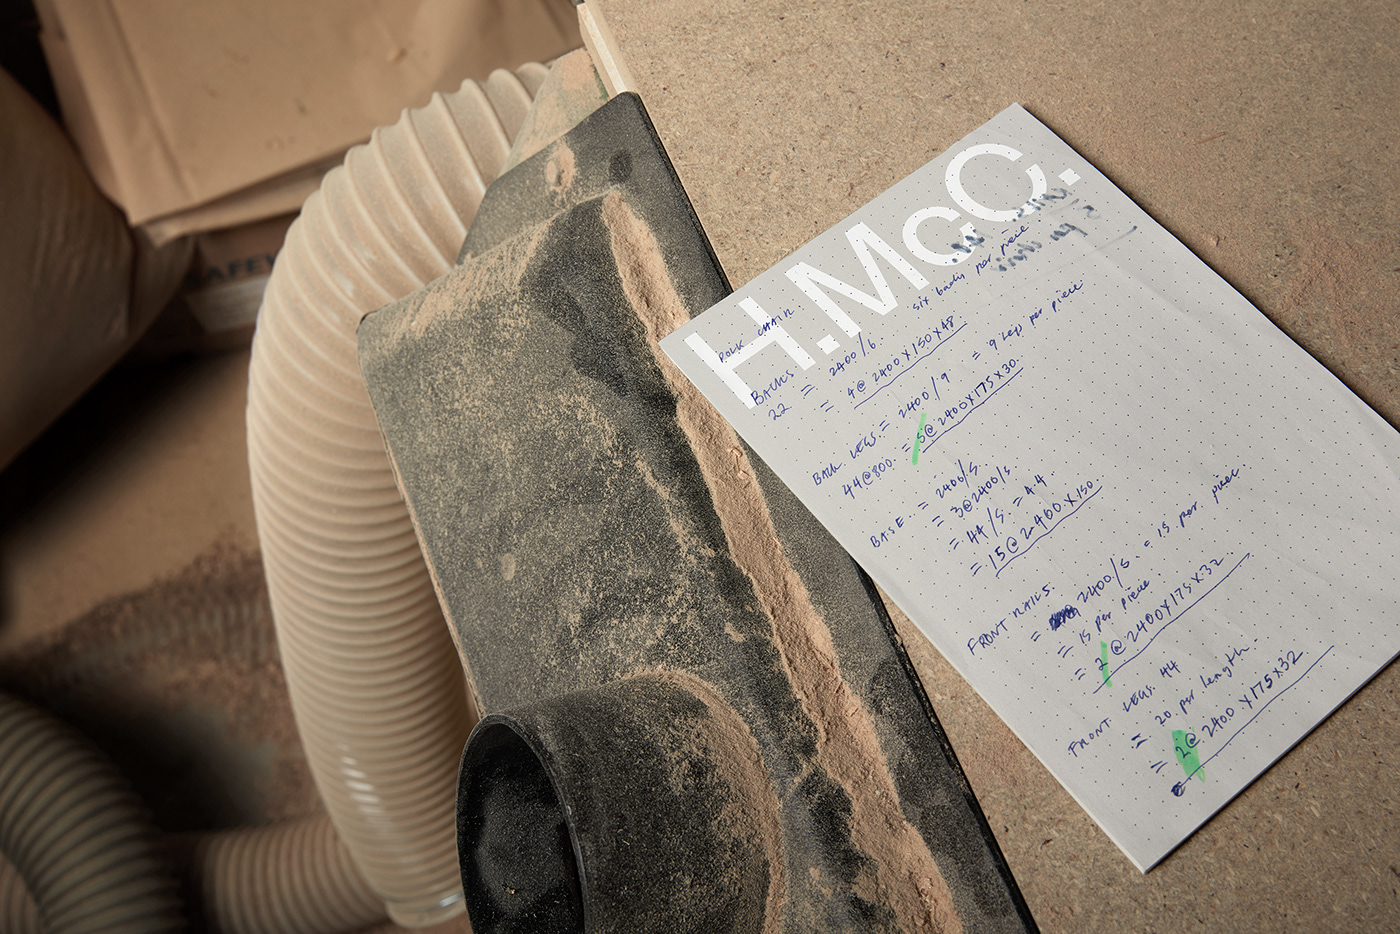 SAFETY
H.McC.
POLK CHAIR
BACKS = 2400/6 six backs per piece
22 = 4@ 2400 X 150 X 48
BACK LEGS. = 2400/9 = 9 legs per piece.
44@800. = 5@ 2400X175X30.
BASE. = 2400/5.
= 3@2400/5
= 44/5. = 4.4
= 15@2400.X150.
FRONT RAILS.
= 2400/5 = 15 per piece.
= 15 per piece
= 2 @ 2400X175X32
FRONT LEGS. 44
= 20 per length.
= 2@ 2400 X175X32